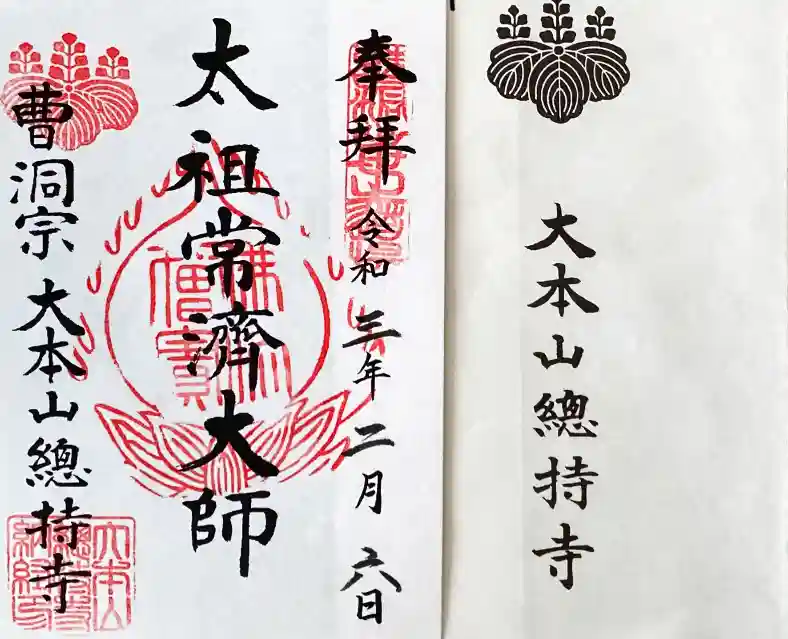 奉拝 令和三年二月六日
太祖常濟大師
曹洞宗 大本山總持寺
佛法僧寳
大本山總持寺